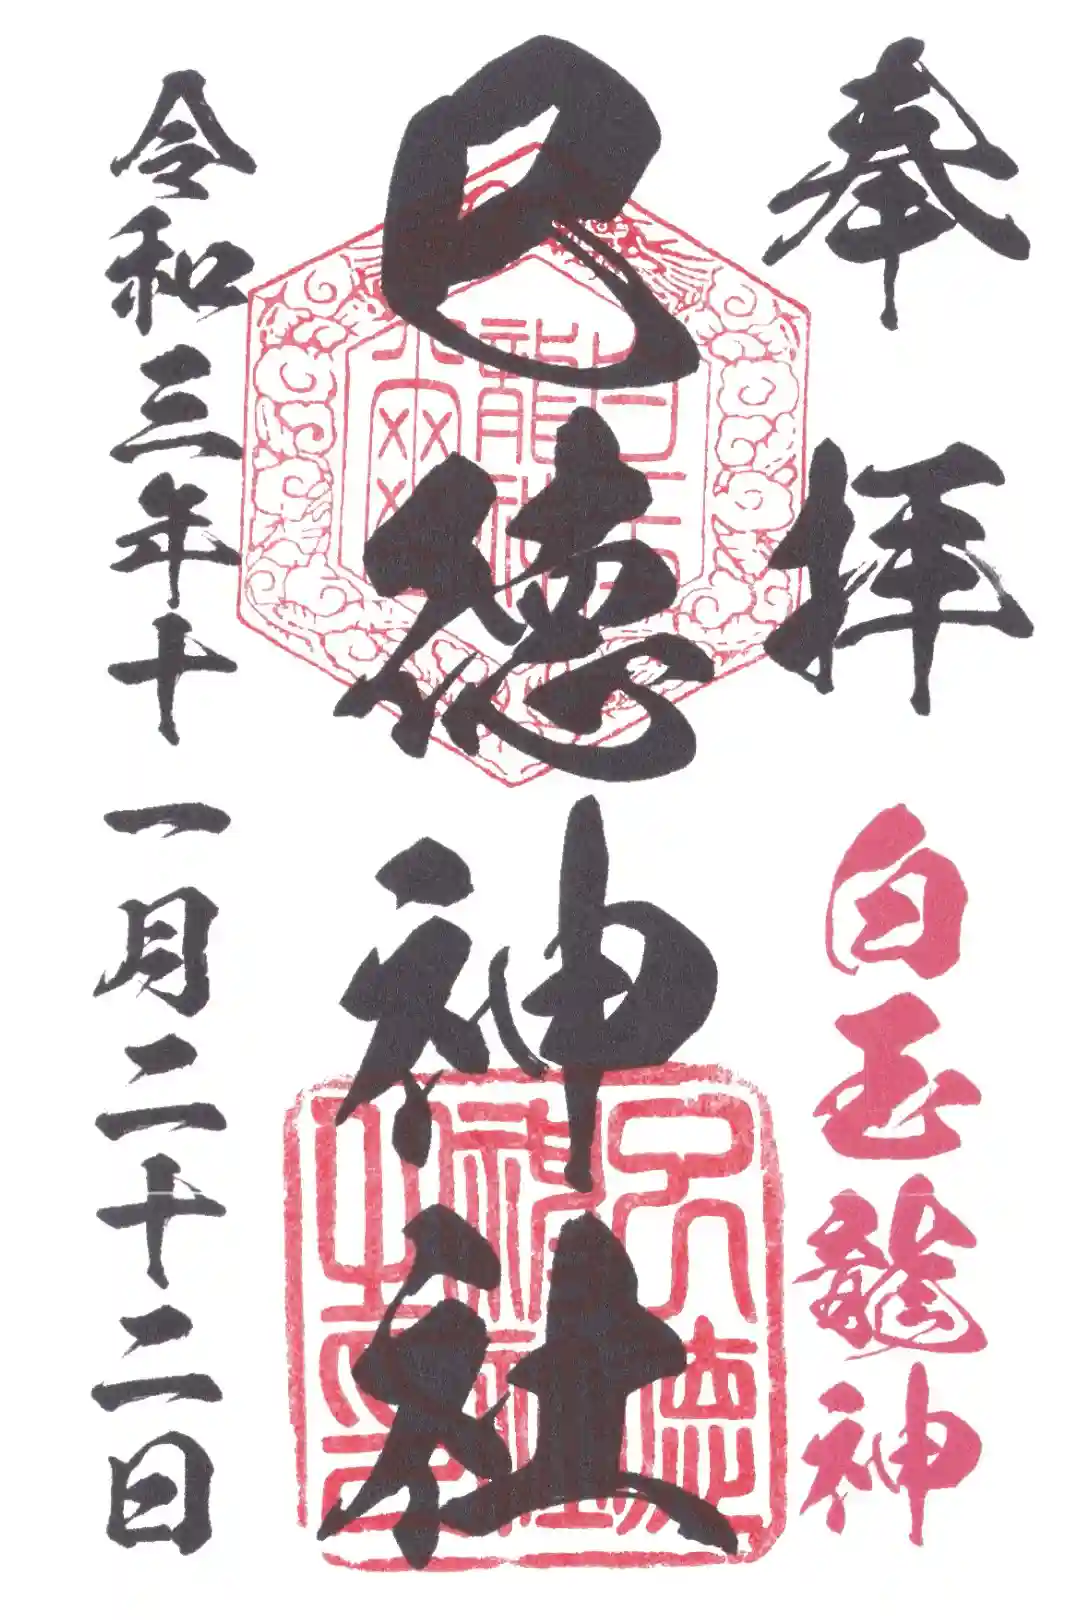 奉拝
白玉龍神
巳德神社
令和三年十一月二十二日